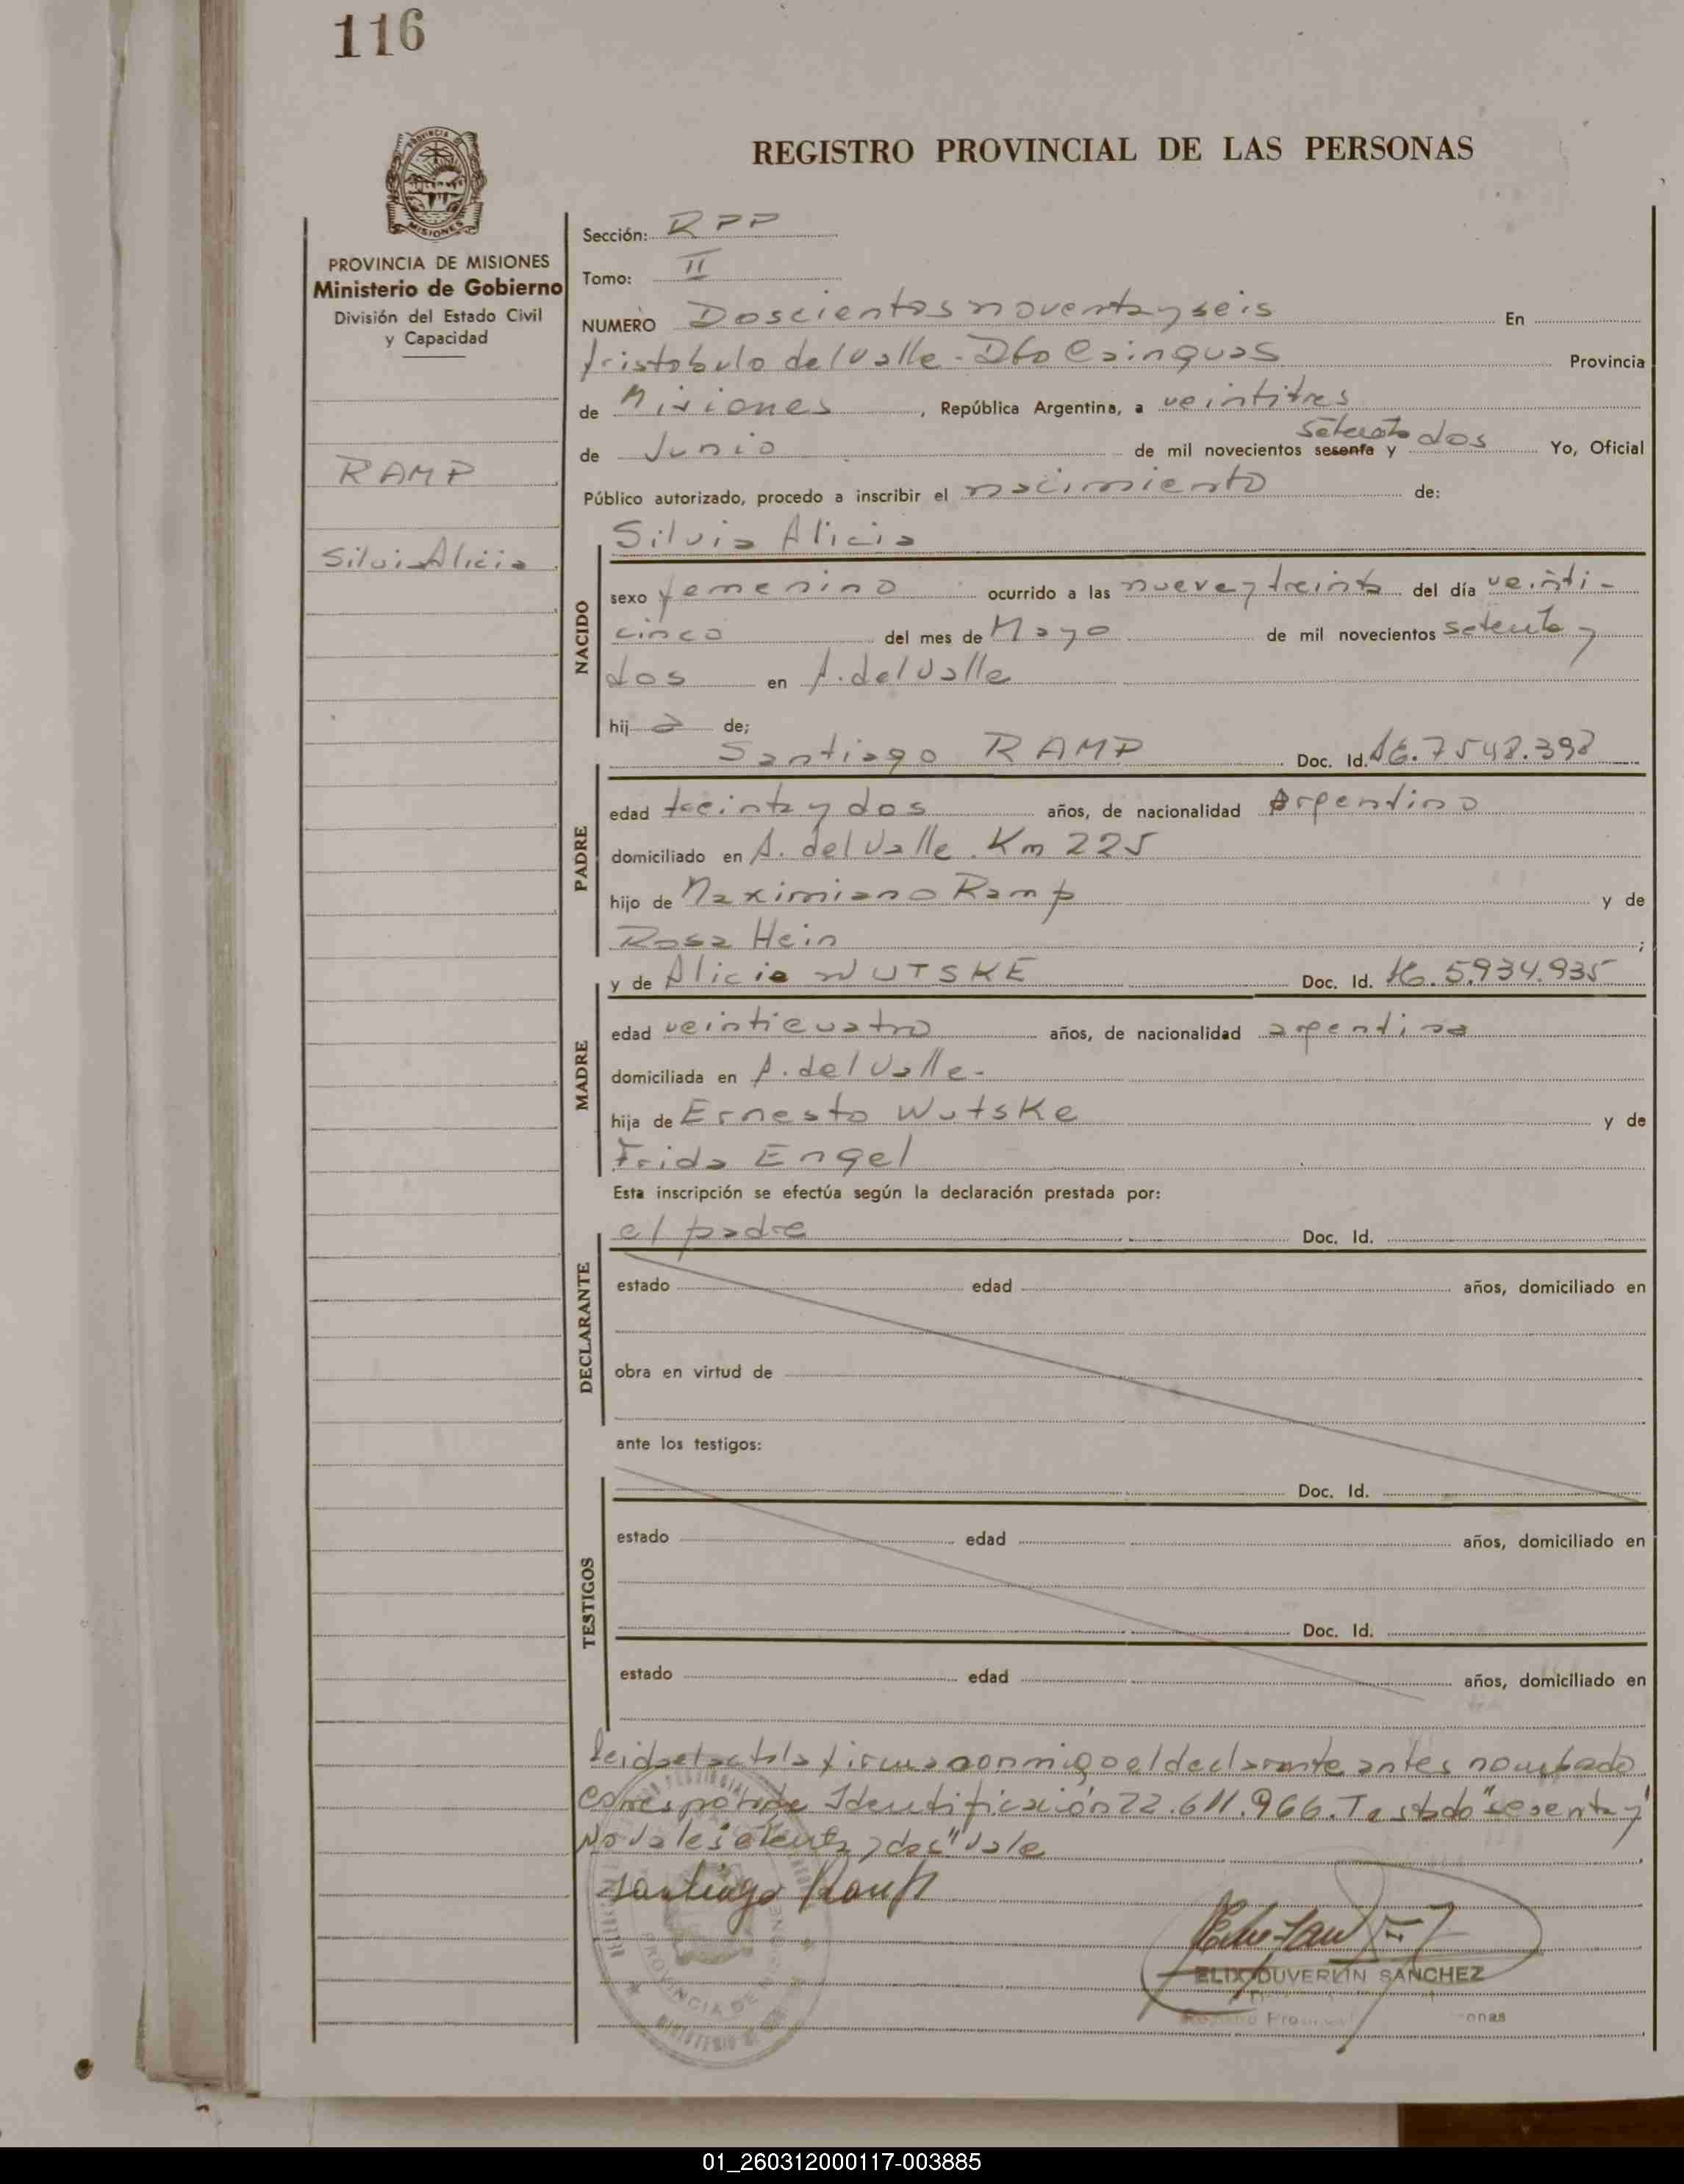 116
PROVINCIA
MISIONES
REGISTRO PROVINCIAL DE LAS PERSONAS
PROVINCIA DE MISIONES
Ministerio de Gobierno
División del Estado Civil
y Capacidad
RAMP
Silvia Alicia
Sección: RPP
Tomo: II
NUMERO Doscientos noventa y seis En
Aristobulo del Valle - Dto Cainguas Provincia
de Misiones, República Argentina, a veintitres
de Junio de mil novecientos sesenta y setenta dos Yo, Oficial
Público autorizado, procedo a inscribir el nacimiento de:
Silvia Alicia
NACIDO
sexo femenino ocurrido a las nueve y treinta del día veinti-
cinco del mes de Mayo de mil novecientos setenta y
dos en A. del Valle
hij a de;
Santiago RAMP Doc. Id. M. 7548.398
PADRE
edad treinta y dos años, de nacionalidad Argentino
domiciliado en A. del Valle. Km 225
hijo de Maximiano Ramp y de
Rosa Hein ;
y de Alicia WUTSKE Doc. Id. 5.934.935
MADRE
edad veinticuatro años, de nacionalidad argentina
domiciliada en A. del Valle.-
hija de Ernesto Wutske y de
Frida Engel
Esta inscripción se efectúa según la declaración prestada por:
el padre Doc. Id.
DECLARANTE
estado edad años, domiciliado en
obra en virtud de
ante los testigos:
Doc. Id.
TESTIGOS
estado edad años, domiciliado en
Doc. Id.
estado edad años, domiciliado en
Leida el acta la firma conmigo el declarante antes nombrado
Corresponde Identificación 22.611.966. Testado "sesenta y"
No vale setenta y dos" vale
Santiago Ramp
ELIX DUVERLIN SANCHEZ
PROVINCIA DE
01_260312000117-003885